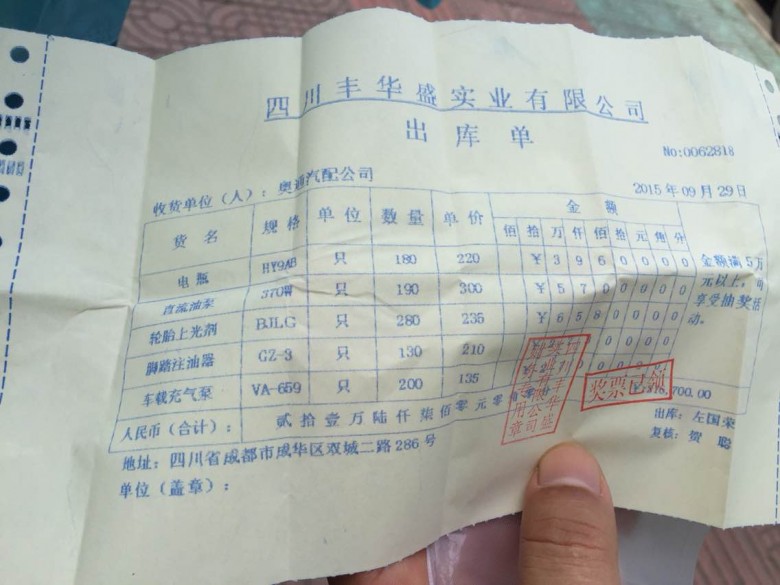 四川丰华盛实业有限公司
出库单
No:0062818
收货单位（人）：奥迪汽配公司
2015年09月29日
货名 规格 单位 数量 单价 金额
佰 拾 万 仟 佰 拾 元 角 分
电瓶 HY9AB 只 180 220 ¥ 3 9 6 0 0 0 0
直流油泵 370W 只 190 300 ¥ 5 7 0 0 0 0 0
轮胎上光剂 BJLG 只 280 235 ¥ 6 5 8 0 0 0 0
脚踏注油器 GZ-3 只 130 210
车载充气泵 VA-659 只 200 135
金额满5万
元以上，
享受抽奖活
动。
人民币（合计）： 贰拾壹万陆仟柒佰零元零角
700.00
奖票已领
地址：四川省成都市成华区双城二路286号
出库：左国荣
复核：贺聪
单位（盖章）：